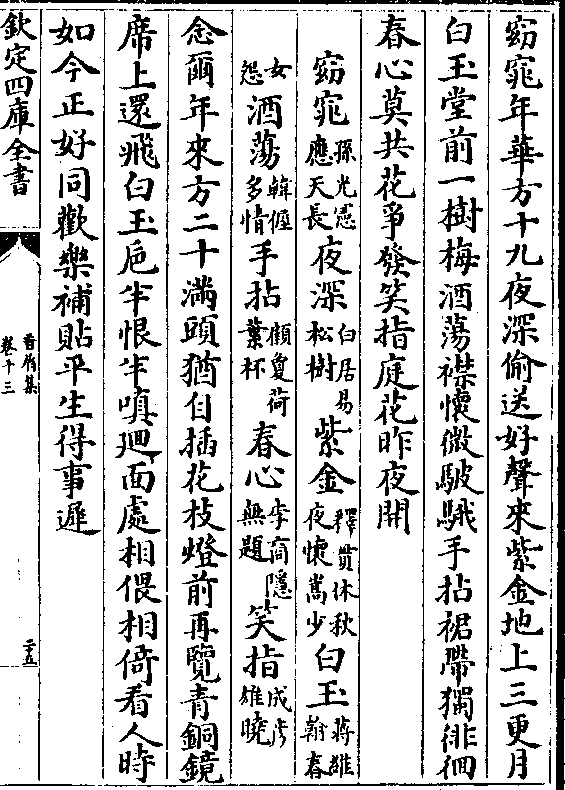 窈窕年華方十九夜深偷送好聲來紫金地上三更月
白玉堂前一樹梅酒蕩襟懷微駊騀手拈裙帶獨徘徊
春心莫共花爭發笑指庭花昨夜開
窈窕孫光憲應天長夜深白居易松樹紫金釋貫休秋夜懷嵩少白玉蔣維翰春
女怨酒蕩韓偓多情手拈顧夐荷葉杯春心李商隱無題笑指成彦雄曉
念爾年來方二十滿頭猶自插花枝燈前再覽青銅鏡
席上還飛白玉巵半恨半嗔迴面處相偎相倚看人時
如今正好同歡樂補貼平生得事遲
欽定四庫全書
香屑集
卷十三
二五